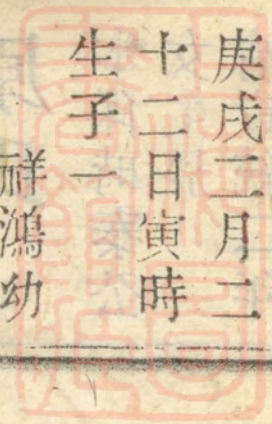 庚戌二月二
十二日寅時
生子一
祥鴻幼